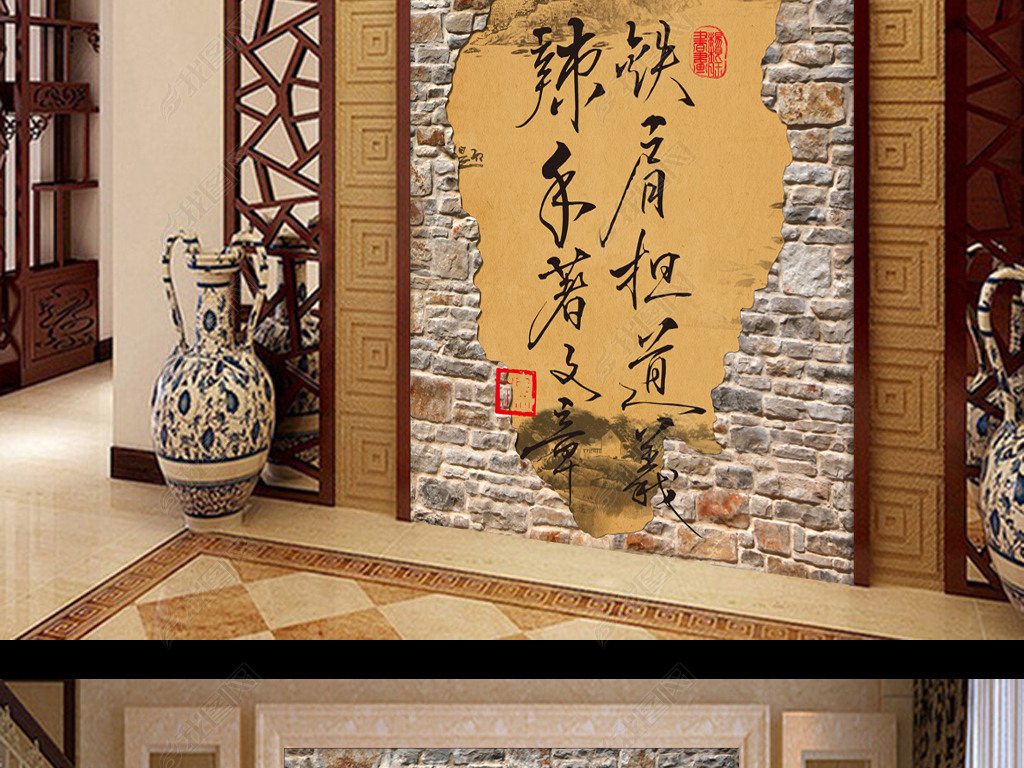 铁肩担道义
辣手著文章